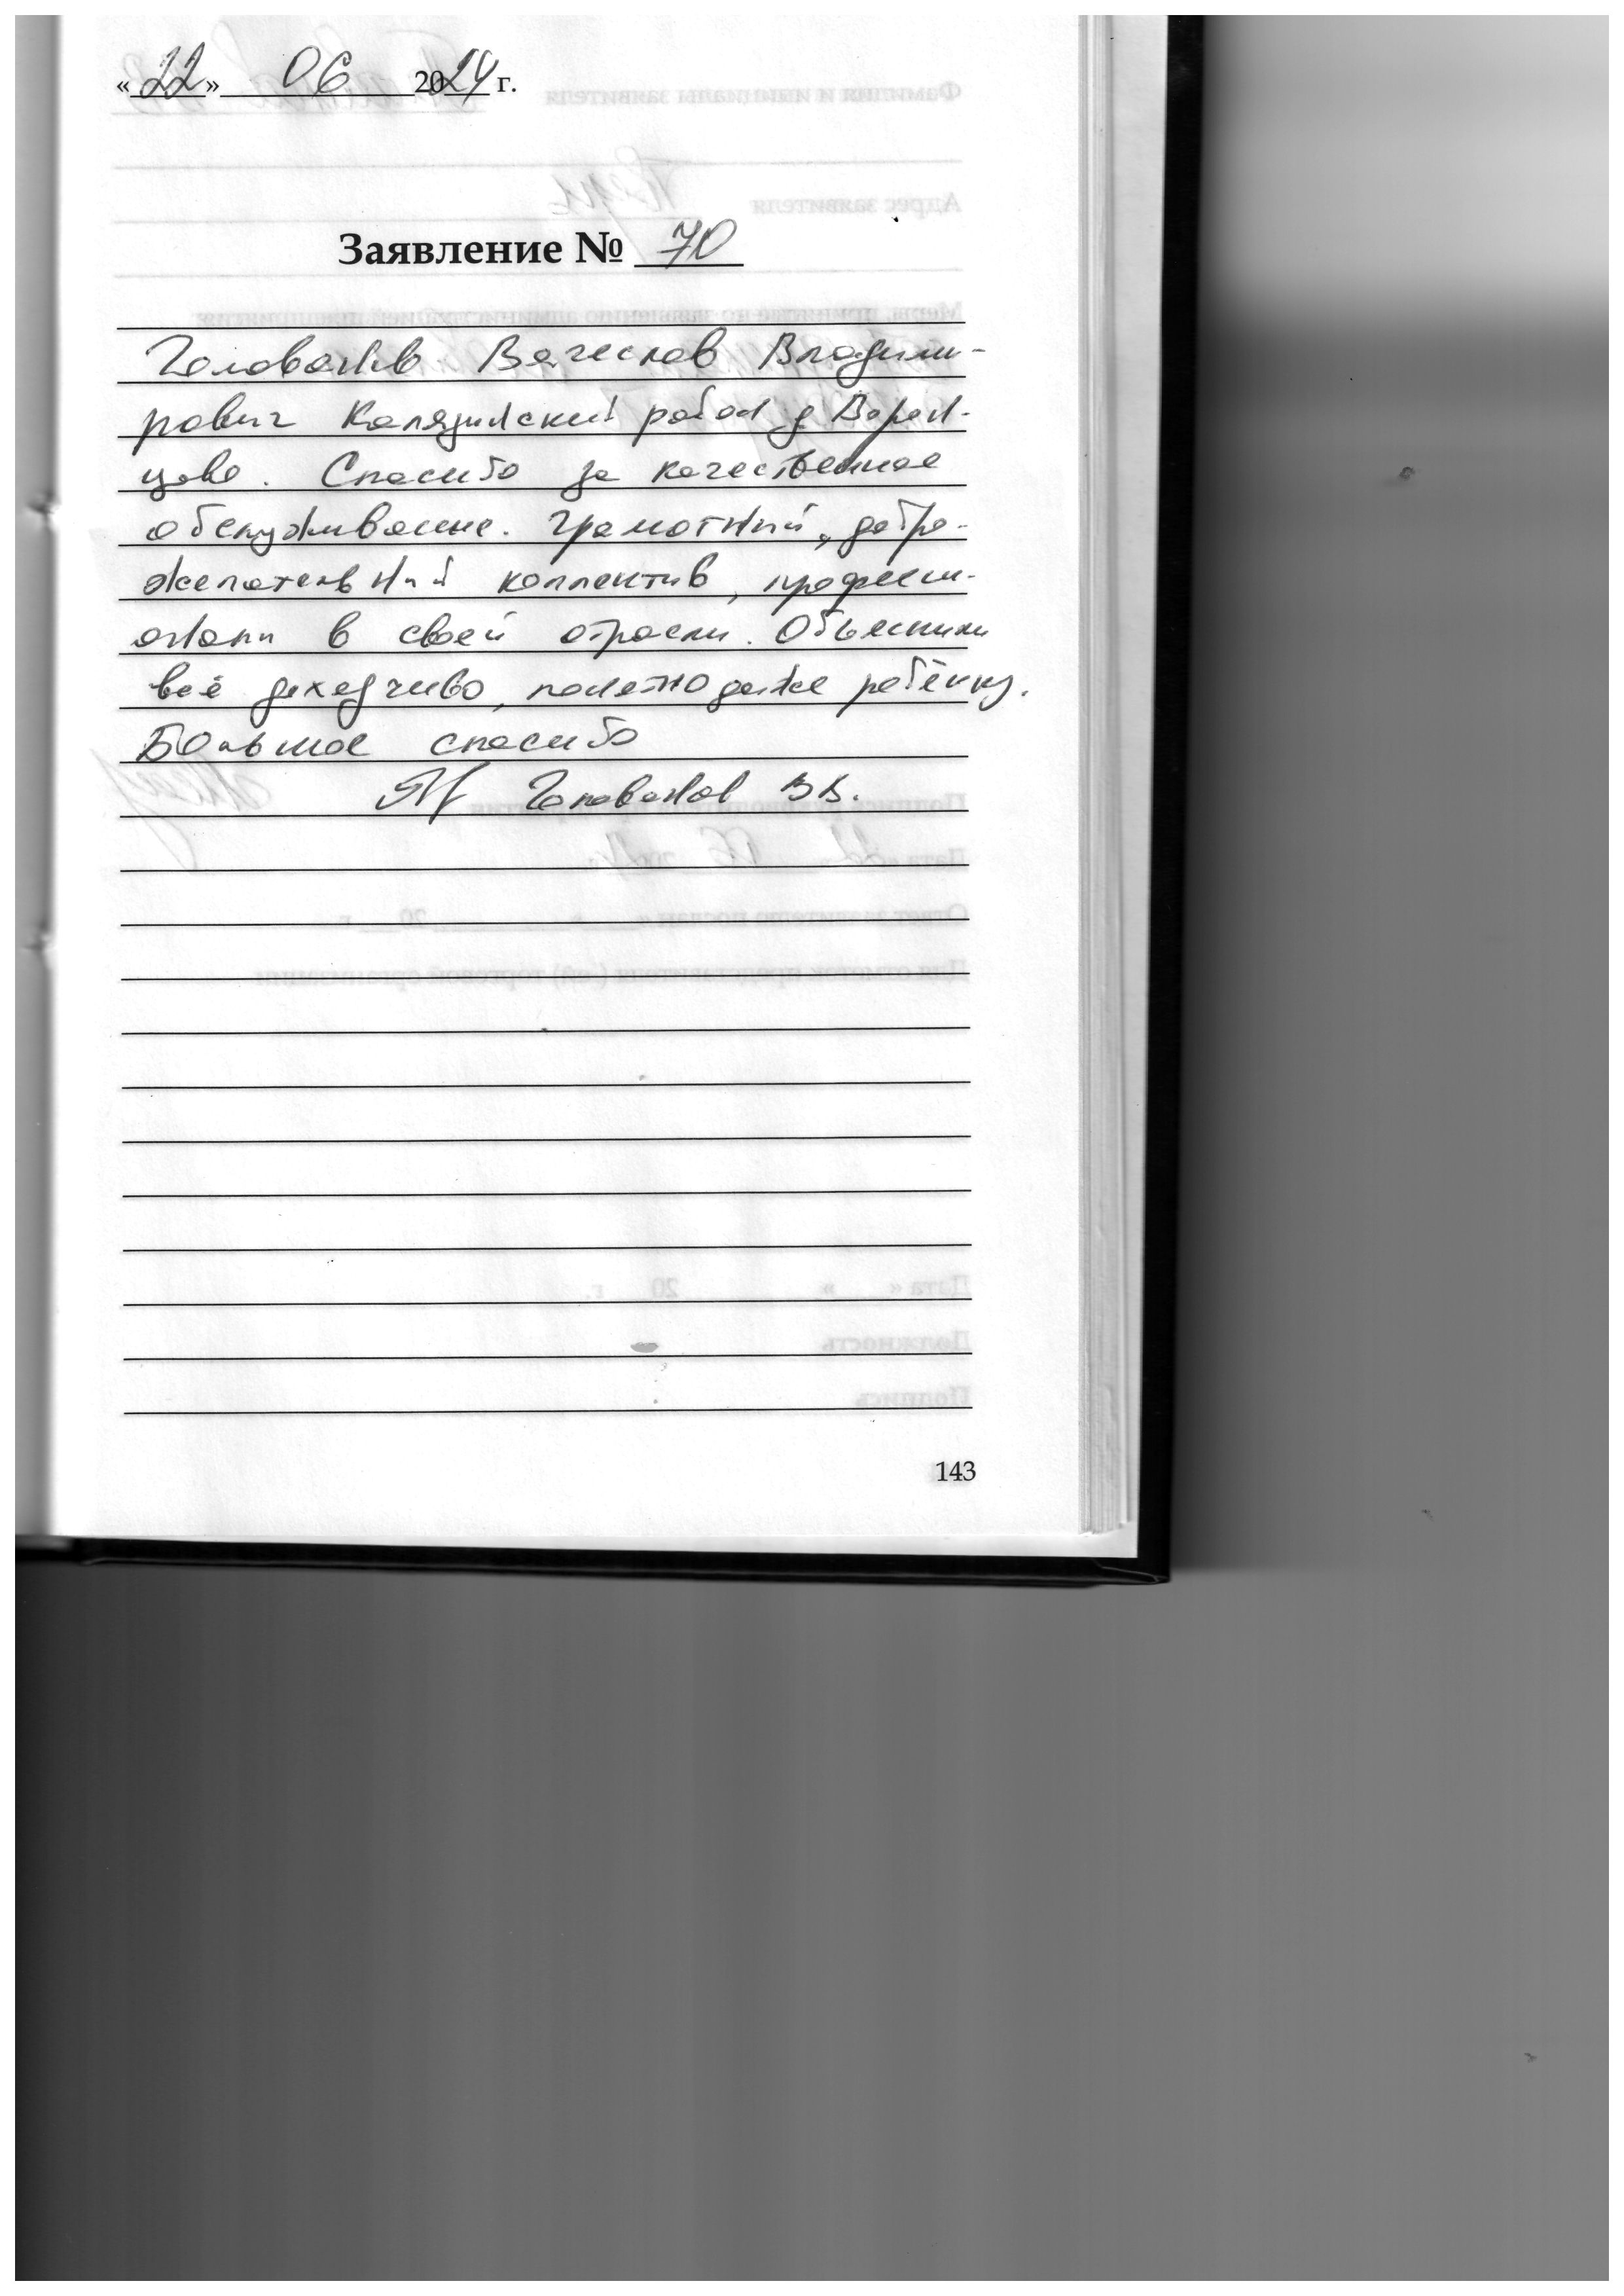 «22» 06 2024 г.
Заявление № 70
Голованов Вячеслав Владими-
рович Калязинский район д
цово. Спасибо за качественное
обслуживание. Грамотный, добро-
желательный коллектив, професси-
оналы в своей отрасли. Объяснили
всё доходчиво, понятно даже ребёнку.
Большое спасибо
Голованов В.В.
143